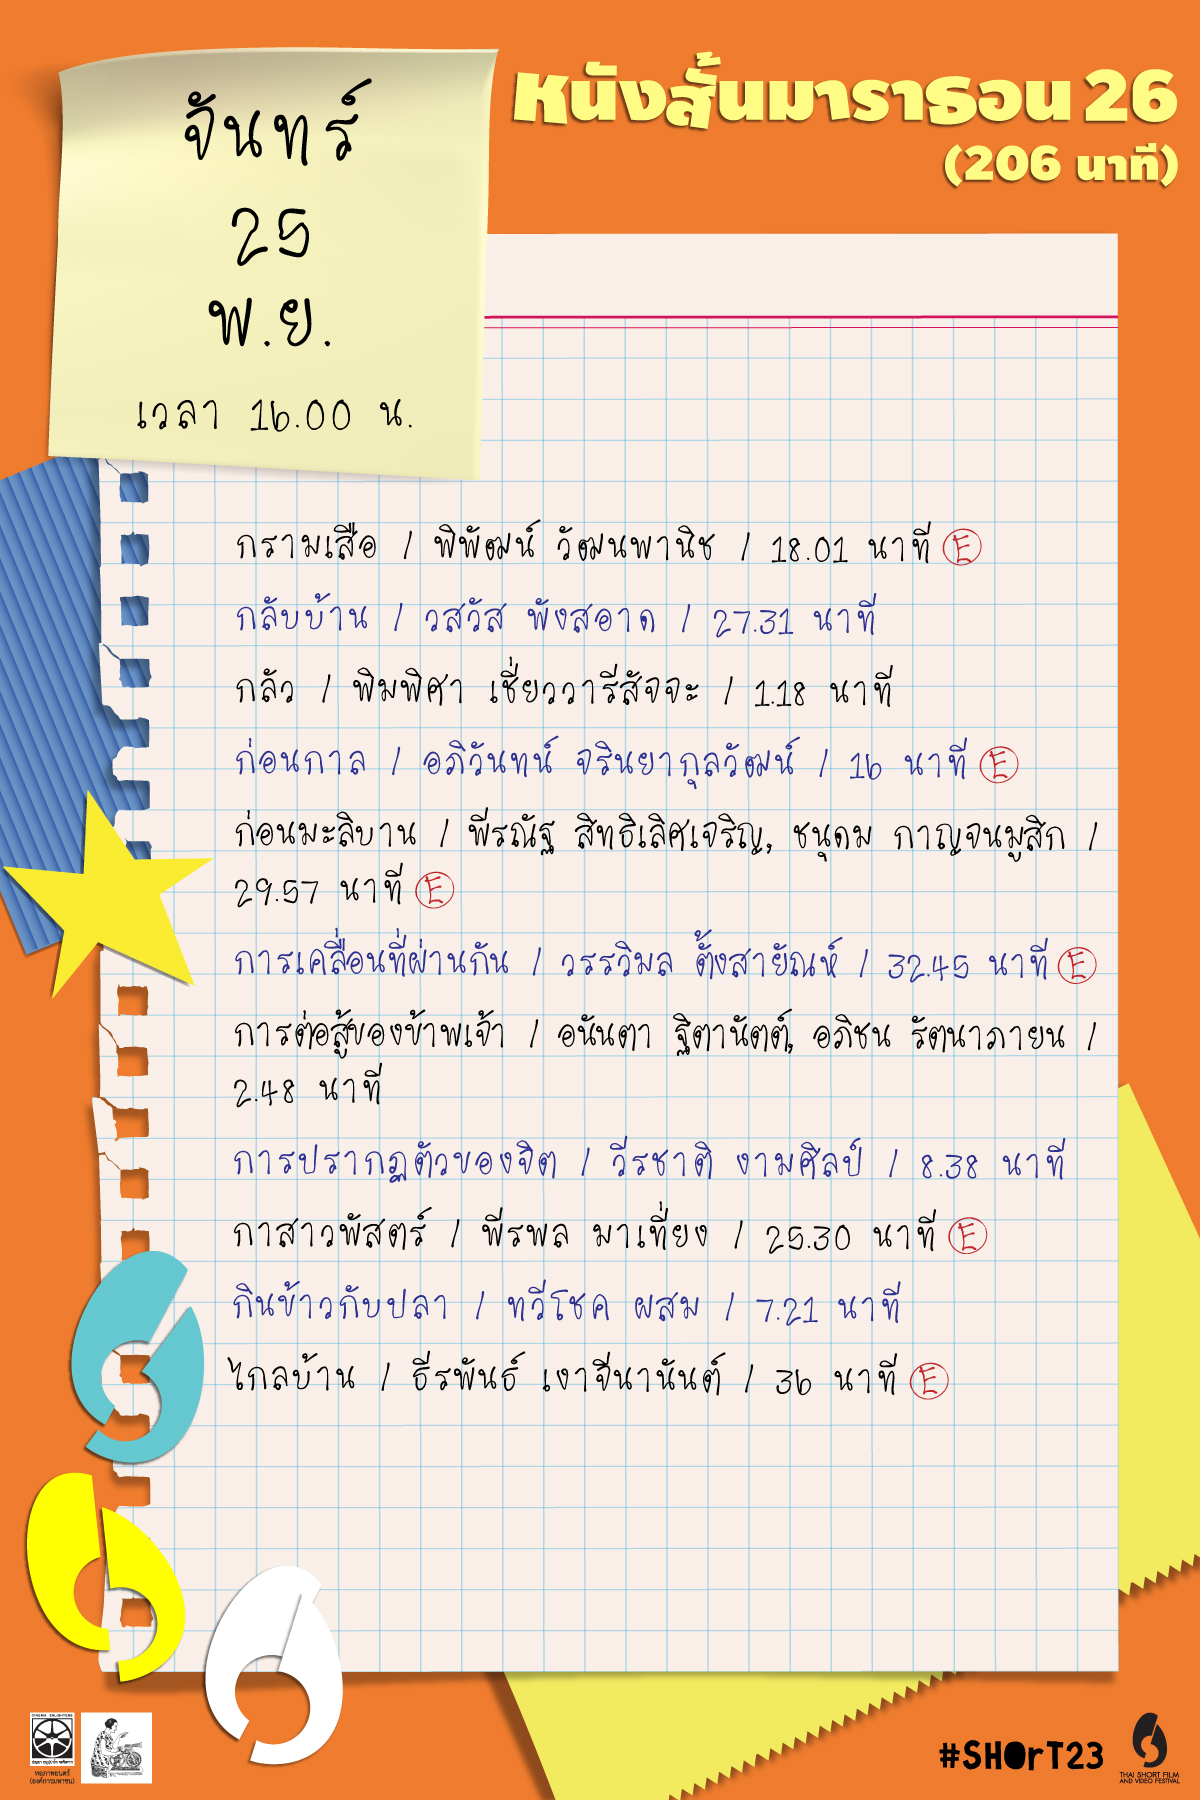 จันทร์
25
พ.ย.
เวลา 16.00 น.
หนังสั้นมาราธอน 26
(206 นาที)
กรามเสือ / พิพัฒน์ วัฒนพานิช / 18.01 นาที E
กลับบ้าน / วสวัส พังสอาด / 27.31 นาที
กลัว / พิมพิศา เชี่ยววารีสัจจะ / 1.18 นาที
ก่อนกาล / อภิวันทน์ จรินยากุลวัฒน์ / 16 นาที E
ก่อนมะลิบาน / พีรณัฐ สิทธิเลิศเจริญ, ชนุดม กาญจนมูสิก /
29.57 นาที E
การเคลื่อนที่ผ่านกัน / วรรวิมล ตั้งสายัณห์ / 32.45 นาที E
การต่อสู้ของข้าพเจ้า / อนันตา ฐิตานัตต์, อภิชน รัตนาภายน /
2.48 นาที
การปรากฏตัวของจิต / วีรชาติ งามศิลป์ / 8.38 นาที
กาสาวพัสตร์ / พีรพล มาเที่ยง / 25.30 นาที E
กินข้าวกับปลา / ทวีโชค ผสม / 7.21 นาที
ไกลบ้าน / ธีรพันธ์ เงาจีนานันต์ / 36 นาที E
หอภาพยนตร์
(องค์การมหาชน)
#SHOrT23
THAI SHORT FILM
AND VIDEO FESTIVAL